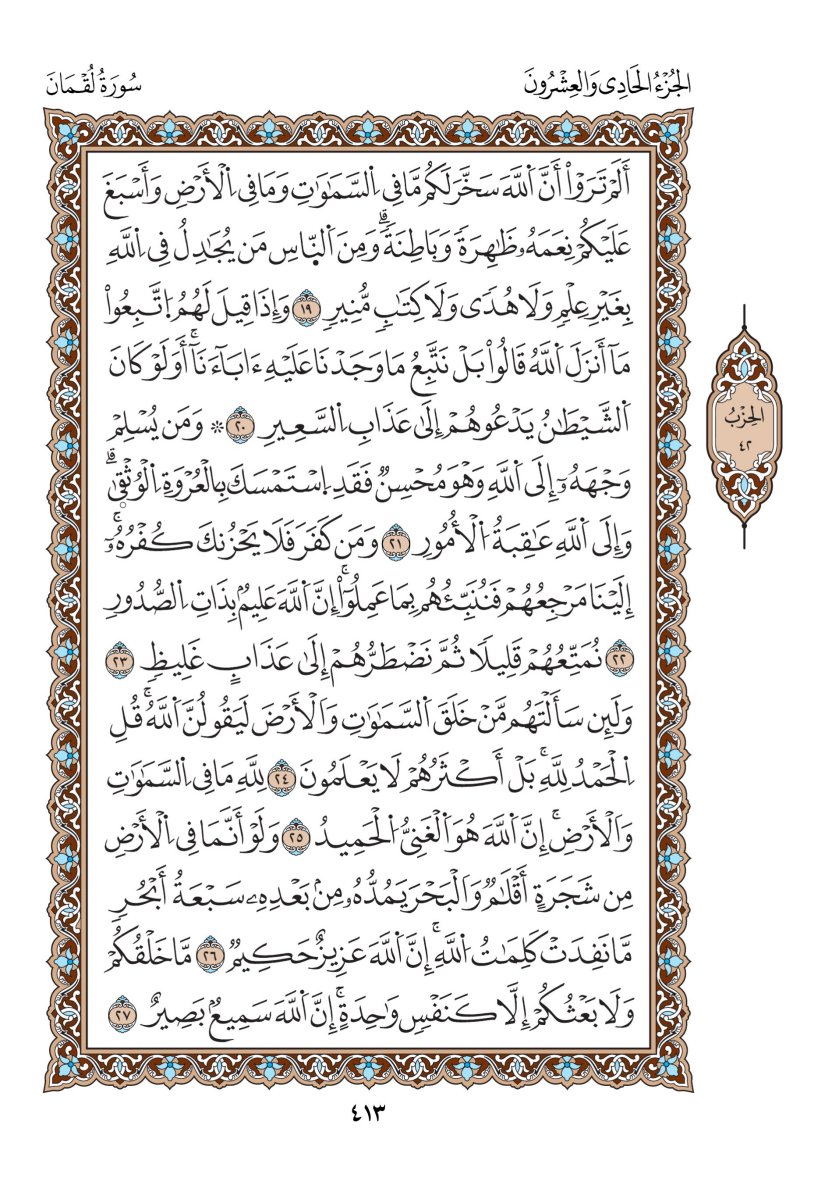 الجُزْءُ الحَادِى وَالعِشْرُونَ
سُورَةُ لُقْمَانَ
أَلَمْ تَرَوْاْ أَنَّ اَللَّهَ سَخَّرَ لَكُم مَّا فِى اِلسَّمَٰوَٰتِ وَمَا فِى اِلْأَرْضِ وَأَسْبَغَ
عَلَيْكُمْ نِعَمَهُۥ ظَٰهِرَةً وَبَاطِنَةً ۗ وَمِنَ اَلنَّاسِ مَن يُجَٰدِلُ فِى اِللَّهِ
بِغَيْرِ عِلْمٍ وَلَا هُدًى وَلَا كِتَٰبٍ مُّنِيرٍ ١٩ وَإِذَا قِيلَ لَهُمُ اُتَّبِعُواْ
مَآ أَنزَلَ اَللَّهُ قَالُواْ بَلْ نَتَّبِعُ مَا وَجَدْنَا عَلَيْهِ ءَابَآءَنَآ ۚ أَوَلَوْ كَانَ
اَلشَّيْطَٰنُ يَدْعُوهُمْ إِلَىٰ عَذَابِ اِلسَّعِيرِ ٢٠ ۞ وَمَن يُسْلِمْ
وَجْهَهُۥٓ إِلَى اَللَّهِ وَهْوَ مُحْسِنٌ فَقَدِ اِسْتَمْسَكَ بِالْعُرْوَةِ اِلْوُثْقَىٰ ۗ
وَإِلَى اَللَّهِ عَٰقِبَةُ اُلْأُمُورِ ٢١ وَمَن كَفَرَ فَلَا يَحْزُنكَ كُفْرُهُۥٓ ۚ
إِلَيْنَا مَرْجِعُهُمْ فَنُنَبِّئُهُم بِمَا عَمِلُوٓاْ ۚ إِنَّ اَللَّهَ عَلِيمٌ بِذَاتِ اِلصُّدُورِ
٢٢ نُمَتِّعُهُمْ قَلِيلًا ثُمَّ نَضْطَرُّهُمْ إِلَىٰ عَذَابٍ غَلِيظٍ ٢٣
وَلَئِن سَأَلْتَهُم مَّنْ خَلَقَ اَلسَّمَٰوَٰتِ وَالْأَرْضَ لَيَقُولُنَّ اَللَّهُ ۚ قُلِ
اِلْحَمْدُ لِلَّهِ ۚ بَلْ أَكْثَرُهُمْ لَا يَعْلَمُونَ ٢٤ لِلَّهِ مَا فِى اِلسَّمَٰوَٰتِ
وَالْأَرْضِ ۚ إِنَّ اَللَّهَ هُوَ اَلْغَنِىُّ اُلْحَمِيدُ ٢٥ وَلَوْ أَنَّمَا فِى اِلْأَرْضِ
مِن شَجَرَةٍ أَقْلَٰمٌ وَالْبَحْرَ يَمُدُّهُۥ مِنۢ بَعْدِهِۦ سَبْعَةُ أَبْحُرٍ
مَّا نَفِدَتْ كَلِمَٰتُ اُللَّهِ ۚ إِنَّ اَللَّهَ عَزِيزٌ حَكِيمٌ ٢٦ مَّا خَلْقُكُمْ
وَلَا بَعْثُكُمْ إِلَّا كَنَفْسٍ وَٰحِدَةٍ ۚ إِنَّ اَللَّهَ سَمِيعٌ بَصِيرٌ ٢٧
الحِزْبُ
٤٢
٤١٣